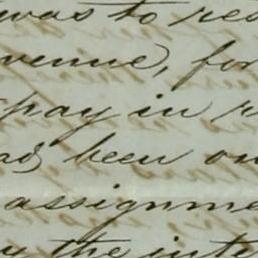 was to res
venue, for
pay in r
been on
assignme
the inte